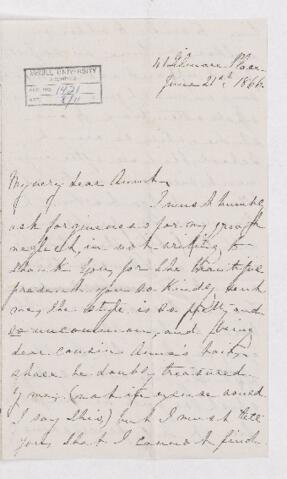 McGILL UNIVERSITY
ARCHIVES
ACC. NO. 1421
REF.
Gilmore Place
June 21st, 1866.
My very dear Aunt,
I must humbly
ask forgiveness for my great
neglect, in not writing to
thank you for the beautiful
present you so kindly sent
me, the style is so pretty and
so uncommon, and being
dear cousin Anna's hair,
shall be doubly treasured
by me; (not if
I say this) but I must tell
you, that I cannot find